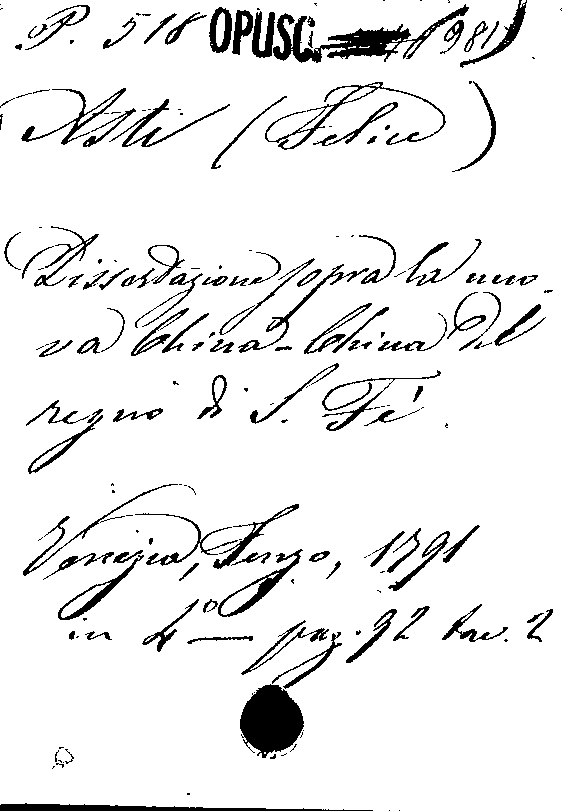 P. 518 OPUSC. (981)
Asti (Felice)
Dissertazione sopra la nuo-
va China-China del
regno di S. Fè.
Venezia, 1791
in 4° — pag. 92 tav. 2